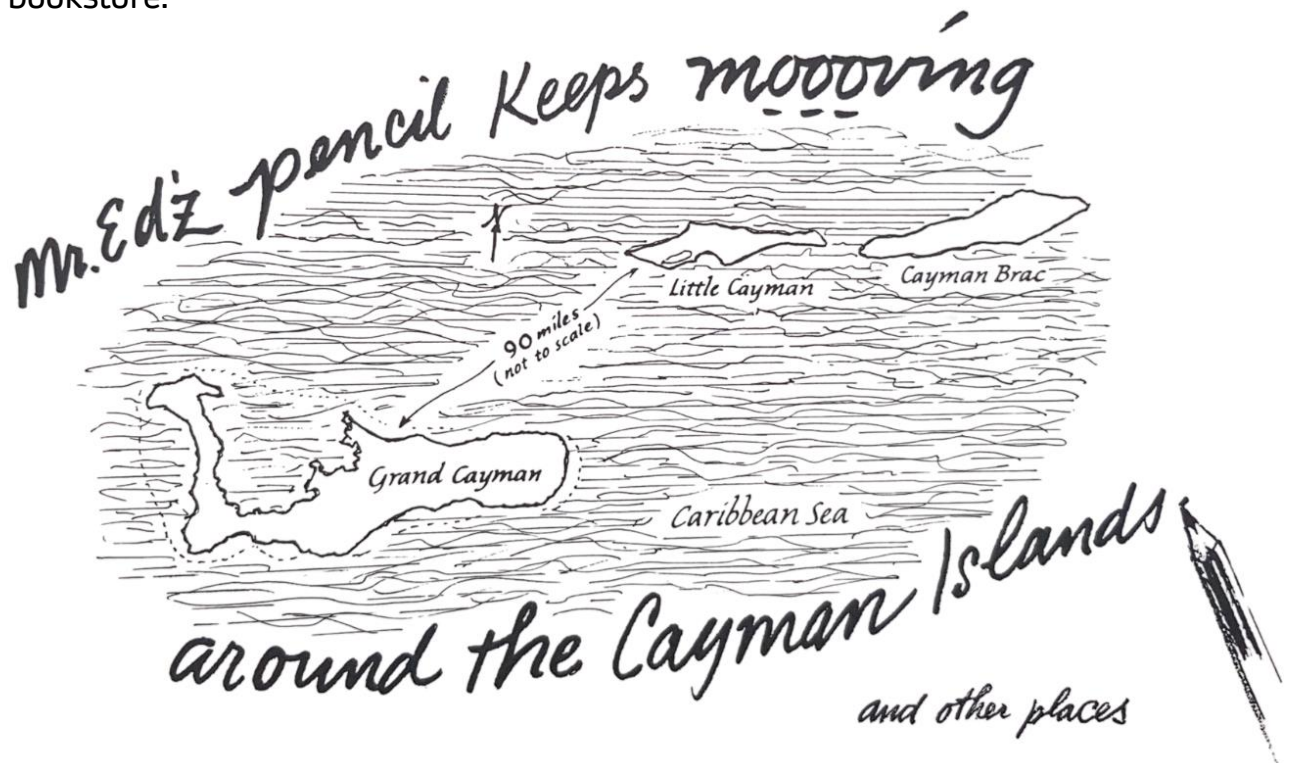 bookstore.
Mr. Ed'z pencil Keeps moooving
N
Little Cayman
Cayman Brac
90 miles
(not to scale)
Grand Cayman
Caribbean Sea
around the Cayman Islands
and other places